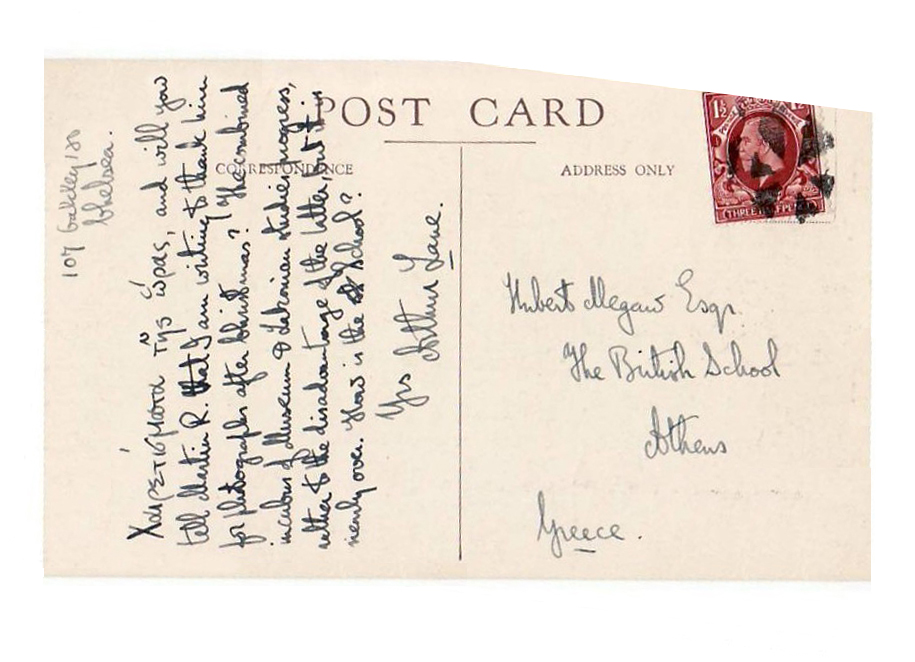 POST CARD
CORRESPONDENCE
ADDRESS ONLY
1½
THREE HALFPENCE
107 Oakley
Chelsea.
Χαιρετίσματα τῆς ὥρας, and will you
tell Martin R. that I am writing to thank him
for photographs after Christmas? The combined
incubus of Museum & Lakonian studies progress,
rather to the disadvantage of the latter, but it is
nearly over. How is the School?
Yrs Arthur Lane.
Hubert Megaw Esqr.
The British School
Athens
Greece.